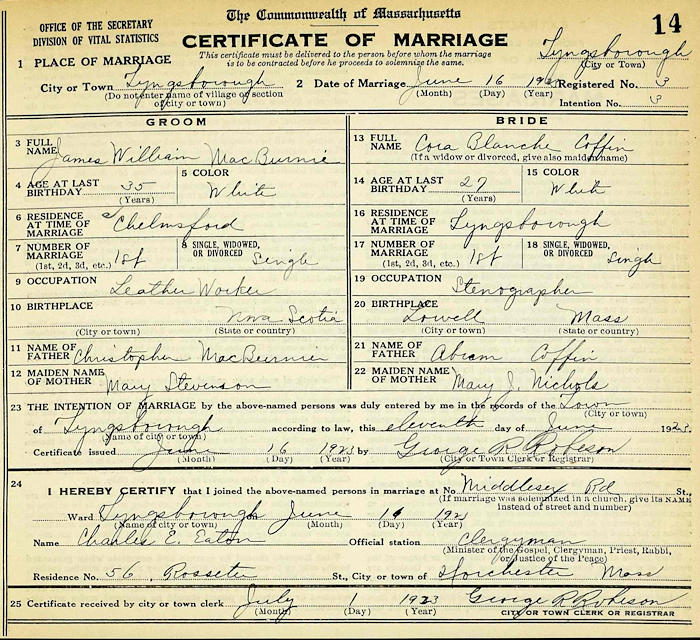 The Commonwealth of Massachusetts
14
OFFICE OF THE SECRETARY
DIVISION OF VITAL STATISTICS
CERTIFICATE OF MARRIAGE
This certificate must be delivered to the person before whom the marriage
is to be contracted before he proceeds to solemnize the same.
Tyngsborough
(City or Town)
1 PLACE OF MARRIAGE
City or Town Tyngsborough
(Do not enter name of village or section
of city or town)
2 Date of Marriage June 16 1923
(Month) (Day) (Year)
Registered No. 3
Intention No. 3
GROOM
3 FULL NAME James William MacBurnie
4 AGE AT LAST BIRTHDAY 35
(Years)
5 COLOR White
6 RESIDENCE AT TIME OF MARRIAGE Chelmsford
7 NUMBER OF MARRIAGE 1st
(1st, 2d, 3d, etc.)
8 SINGLE, WIDOWED, OR DIVORCED Single
9 OCCUPATION Leather Worker
10 BIRTHPLACE Nova Scotia
(City or town) (State or country)
11 NAME OF FATHER Christopher MacBurnie
12 MAIDEN NAME OF MOTHER Mary Stevenson
BRIDE
13 FULL NAME Cora Blanche Coffin
(If a widow or divorced, give also maiden name)
14 AGE AT LAST BIRTHDAY 27
(Years)
15 COLOR White
16 RESIDENCE AT TIME OF MARRIAGE Tyngsborough
17 NUMBER OF MARRIAGE 1st
(1st, 2d, 3d, etc.)
18 SINGLE, WIDOWED, OR DIVORCED Single
19 OCCUPATION Stenographer
20 BIRTHPLACE Lowell Mass
(City or town) (State or country)
21 NAME OF FATHER Abram Coffin
22 MAIDEN NAME OF MOTHER Mary J. Nichols
23 THE INTENTION OF MARRIAGE by the above-named persons was duly entered by me in the records of the Town
(City or town)
of Tyngsborough according to law, this eleventh day of June 1923.
(Name of city or town)
Certificate issued June 16 1923 by George R Robeson
(Month) (Day) (Year) (City or Town Clerk or Registrar)
24
I HEREBY CERTIFY that I joined the above-named persons in marriage at No. Middlesex Rd St.,
(If marriage was solemnized in a church, give its NAME
instead of street and number)
Ward Tyngsborough June 16 192
(Name of city or town) (Month) (Day) (Year)
Name Charles E. Eaton Official station Clergyman
(Minister of the Gospel, Clergyman, Priest, Rabbi,
or Justice of the Peace)
Residence No. 56 Rosseter St., City or town of Dorchester Mass
25 Certificate received by city or town clerk July 1 1923 George R Robeson
(Month) (Day) (Year) CITY OR TOWN CLERK OR REGISTRAR